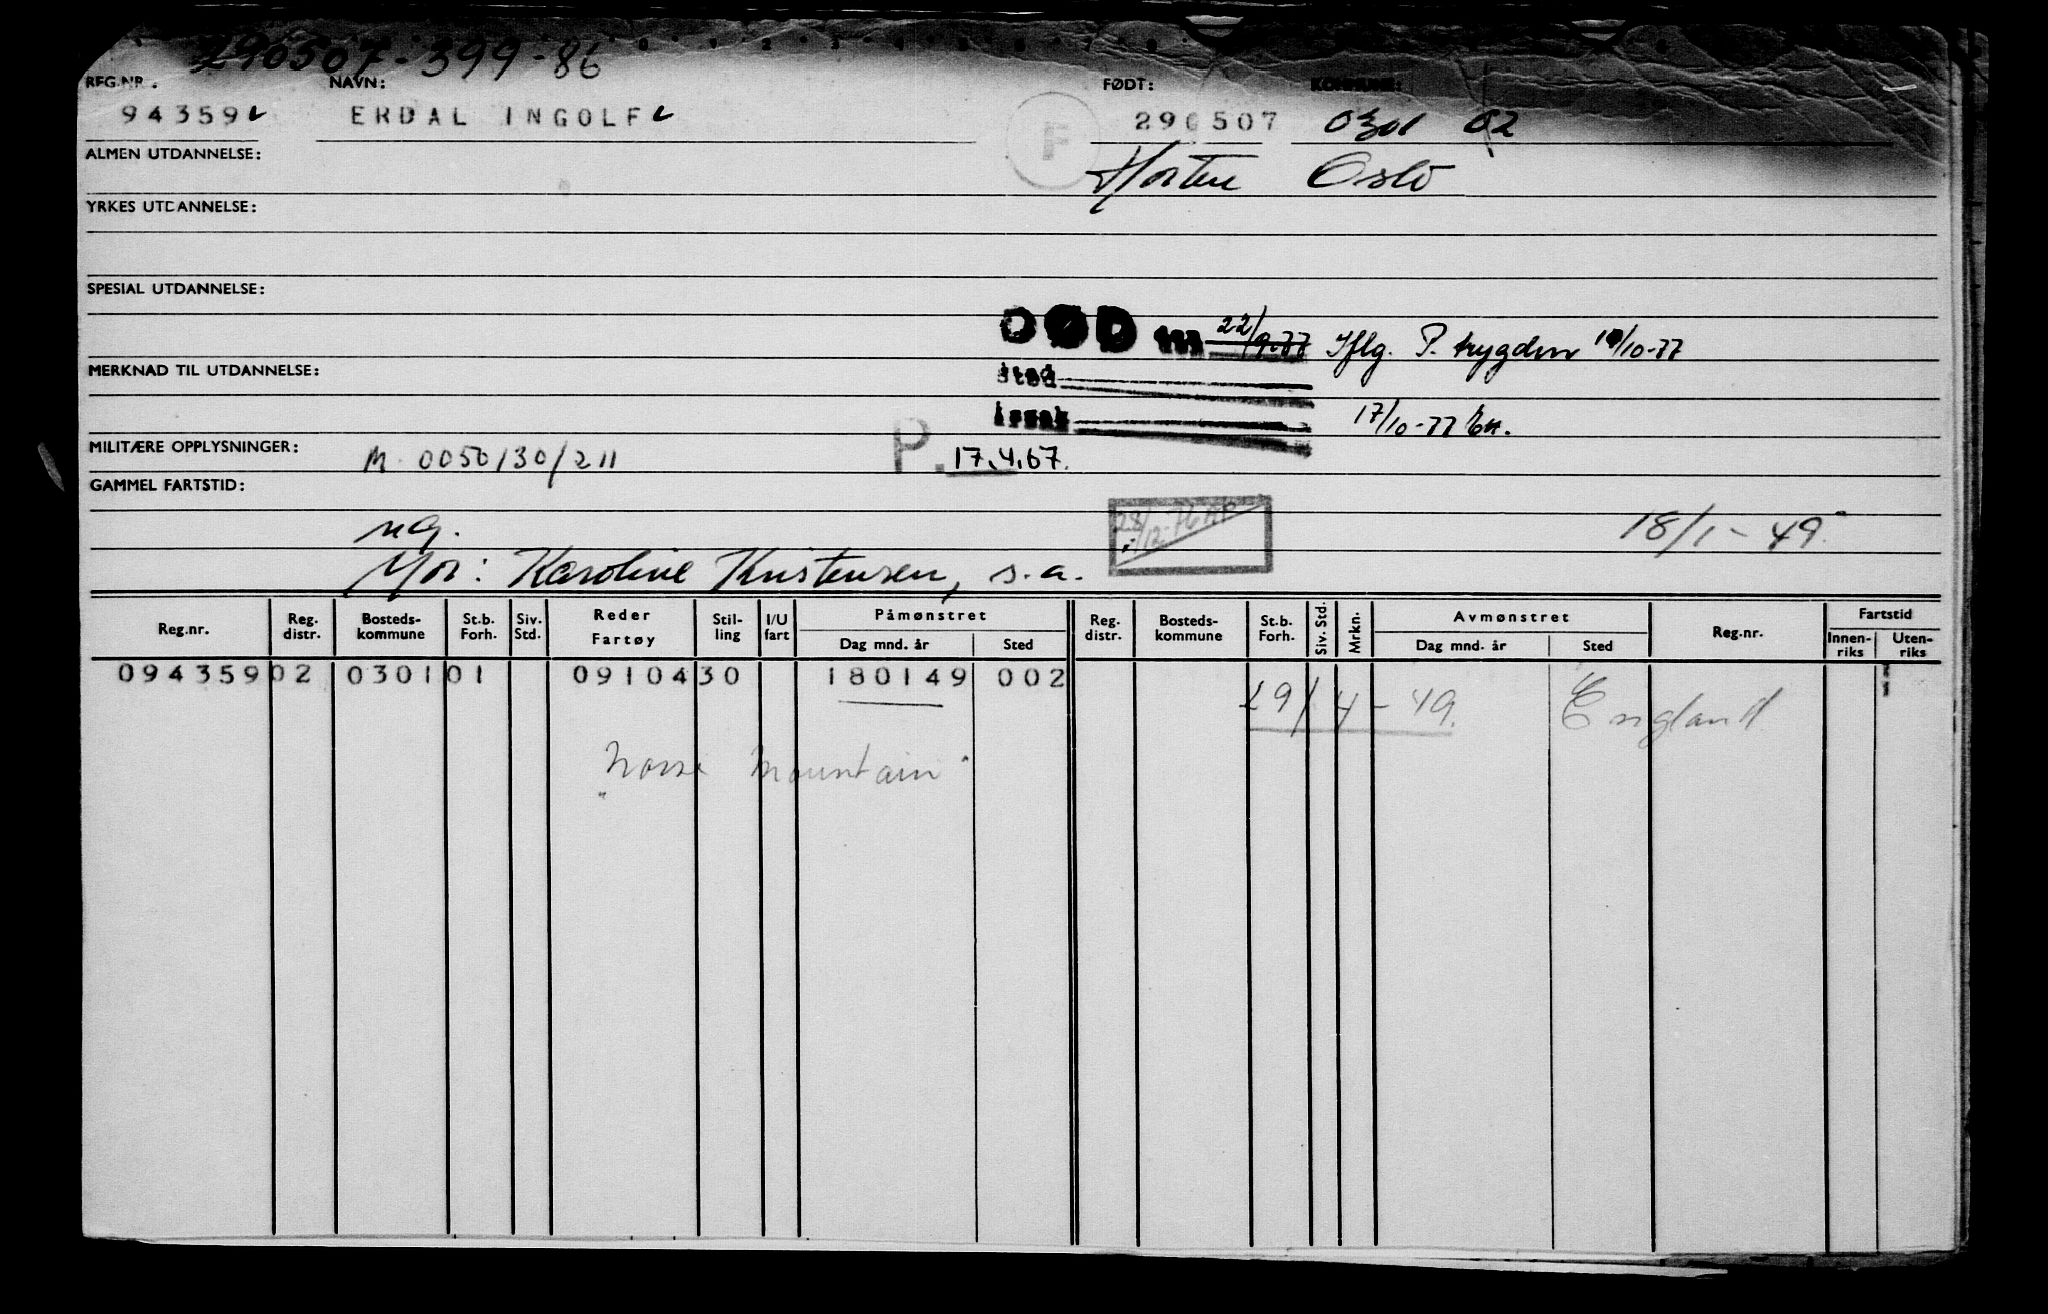 290507-399-86
REG.NR. NAVN: FØDT: KOMMUNE:
94359 ERDAL INGOLF F 290507 0301 02
ALMEN UTDANNELSE: Horten Oslo
YRKES UTDANNELSE:
SPESIAL UTDANNELSE:
DØD 22/9-77 Iflg. P. trygden /10-77
MERKNAD TIL UTDANNELSE: sted
årsak 17/10-77
MILITÆRE OPPLYSNINGER: M. 0050/30/211 P. 17.4.67.
GAMMEL FARTSTID:
ug. 18/1-49
Mor: Karoline Kristensen, s.a.
Reg.nr. Reg. distr. Bosteds-kommune St.b. Forh. Siv. Std. Reder Fartøy Stil-ling I/U fart Påmønstret Dag mnd. år Sted Reg. distr. Bosteds-kommune St.b. Forh. Siv. Std. Mrkn. Avmønstret Dag mnd. år Sted Reg.nr. Fartstid Innen-riks Uten-riks
094359 02 0301 01 09104 30 180149 002
29/4-49. England
"Norse Mountain"